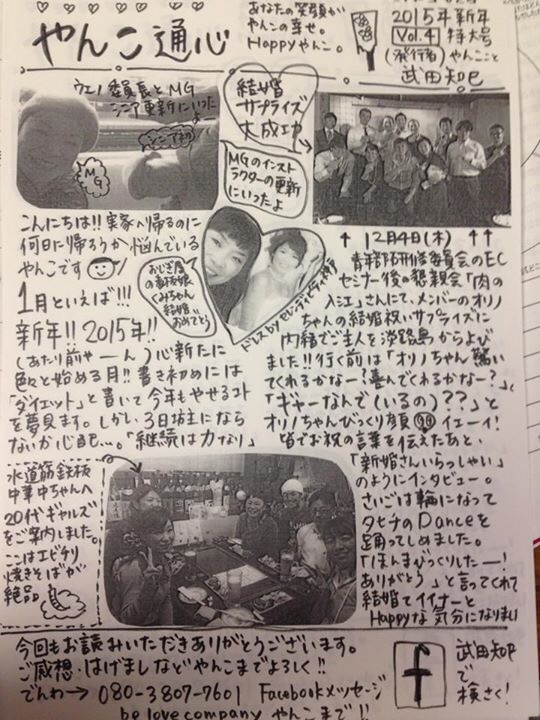 やんこ通心
あなたの笑顔が
やんこの幸せ。
Happyやんこ。
2015年新年
Vol.4 特大号
(発行者)やんここと
武田知巳
ウエノ委員長とMG
シニア更新にいったよー
MG
シニア初
結婚
サプライズ
大成功
MGのインスト
ラクターの更新
にいったよ
こんにちは!!実家へ帰るのに
何日に帰ろうか悩んでいる
やんこです
1月といえば!!!
新年!!2015年!!
(あたり前やーん)心新たに
色々と始める月!!書き初めには
「ダイエット」と書いて今年もやせるコト
を夢見ます。しかし、3日坊主になら
ないか心配…。「継続は力なり」
おじぎ屋
の看板娘
くみちゃん
結婚
おめでとう
ドレスbyセンティピティ神戸
↑12月4日(木)↑
青年部研修委員会のEC
セミナー後の懇親会「肉の
入江」さんにて、メンバーのオリノ
ちゃんの結婚祝いサプライズに
内緒でご主人を淡路島からよび
ました!!行く前は「オリノちゃん驚い
てくれるかなー?喜んでくれるかなー?」、
「ギャーなんで(いるの)??」と
オリノちゃんびっくり顔 イェーイ!
皆でお祝の言葉を伝えたあと、
「新婚さんいらっしゃい」
のようにインタビュー。
さいごは輪になって
タヒチのDanceを
踊ってしめました。
「ほんまびっくりしたー!
ありがとう」と言ってくれて
結婚てイイナーと
Happyな気分になりまし
水道筋鉄板
中華中ちゃんへ
20代ギャルズ
をご案内しました。
ここはエビチリ
焼きそばが
絶品
今回もお読みいただきありがとうございます。
ご感想・はげましなどやんこまでよろしく!!
でんわ→080-3807-7601 Facebookメッセージ
be love company やんこまで!!
f
武田知巳
で
検さく!